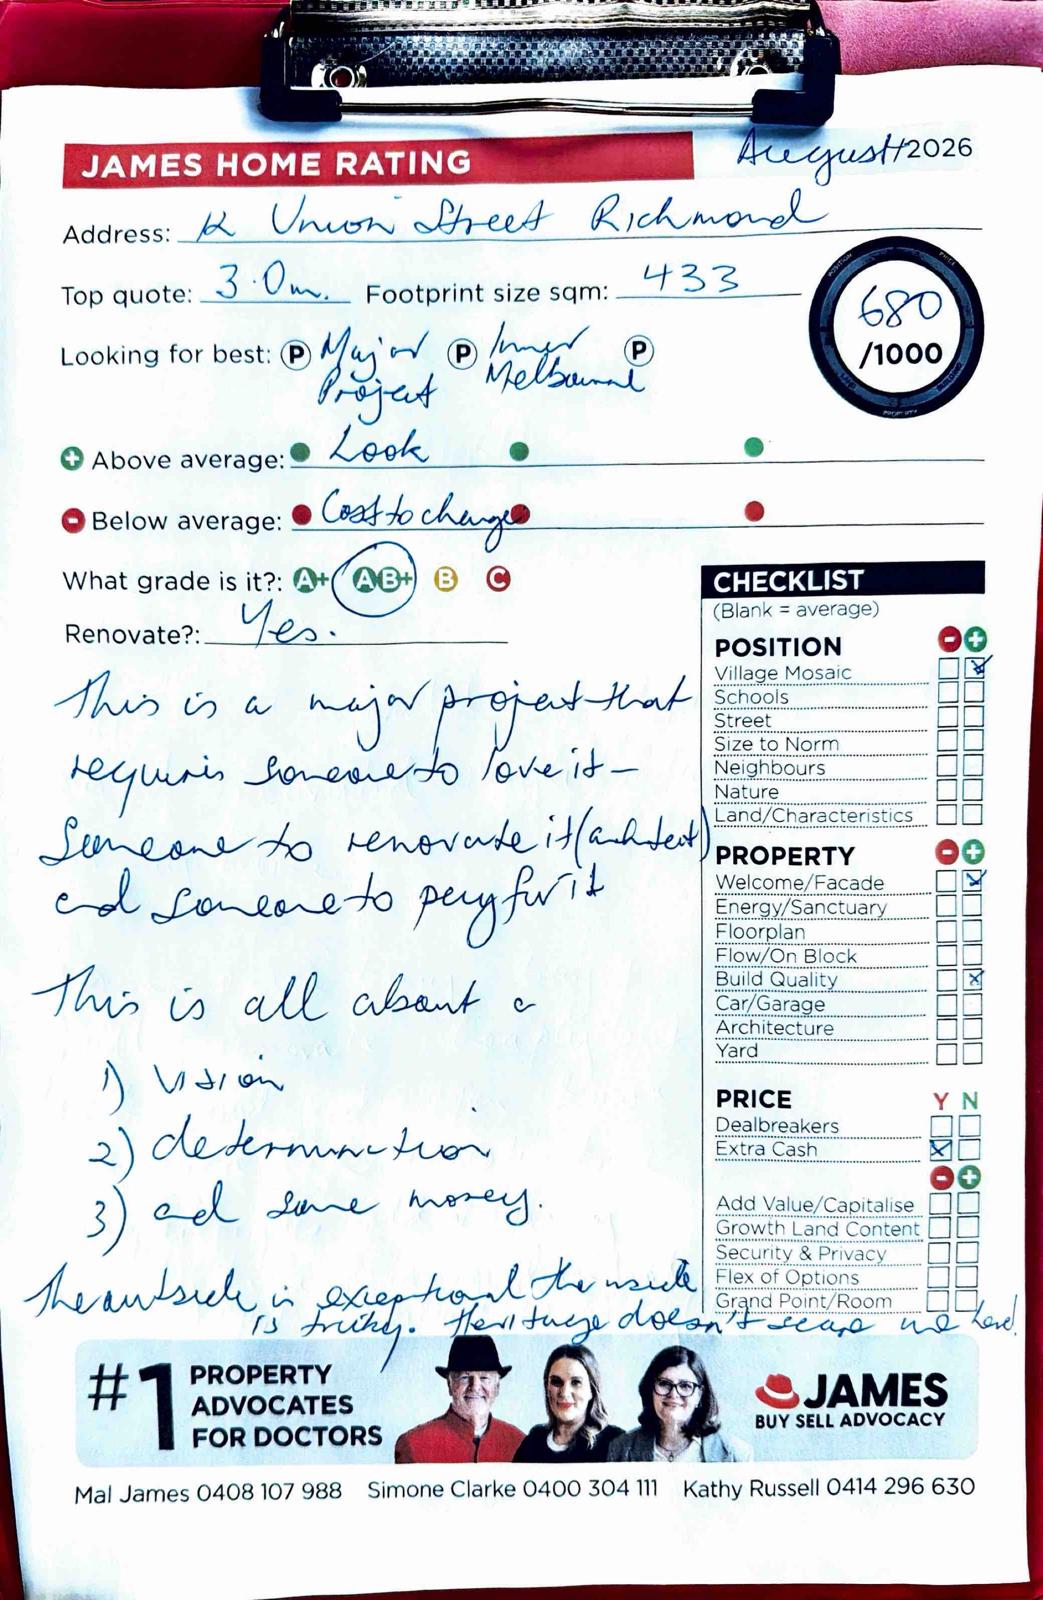 JAMES HOME RATING
August/2026
Address: 12 Union Street Richmond
Top quote: 3.0m. Footprint size sqm: 433
680
/1000
Looking for best: P Major Project P Inner Melbourne P
Above average: Look
Below average: Cost to change
What grade is it?: A+ AB+ B C
Renovate?: Yes.
This is a major project that
requires someone to love it –
Someone to renovate it (architect)
and someone to pay for it
This is all about a
1) vision
2) determination
3) and some money.
The outside is exceptional the inside
is tricky. Heritage doesn't scare me here!
CHECKLIST
(Blank = average)
POSITION - +
Village Mosaic
Schools
Street
Size to Norm
Neighbours
Nature
Land/Characteristics
PROPERTY - +
Welcome/Facade
Energy/Sanctuary
Floorplan
Flow/On Block
Build Quality
Car/Garage
Architecture
Yard
PRICE Y N
Dealbreakers
Extra Cash
- +
Add Value/Capitalise
Growth Land Content
Security & Privacy
Flex of Options
Grand Point/Room
#1 PROPERTY
ADVOCATES
FOR DOCTORS
JAMES
BUY SELL ADVOCACY
Mal James 0408 107 988 Simone Clarke 0400 304 111 Kathy Russell 0414 296 630